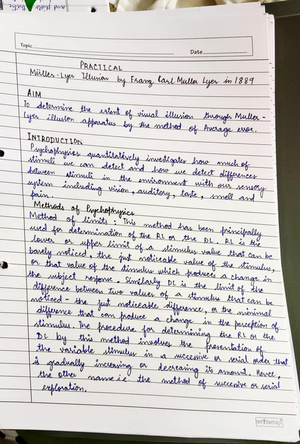 Topic
Date
PRACTICAL
Müller-Lyer Illusion by Franz Carl Muller Lyer in 1889
AIM
To determine the extent of visual illusion through Muller-
Lyer illusion apparatus by the method of Average error.
INTRODUCTION
Psychophysics quantitatively investigates how much of
stimuli we can detect and how we detect differences
between stimuli in the environment with our sensory
system including vision, auditory, taste, smell and
pain.
Methods of Psychophysics
Method of limits: This method has been principally
used for determination of the RL or the DL. RL is the
lower or upper limit of a stimulus value that can be
barely noticed, the just noticable value of the stimulus,
or that value of the stimulus which produces a change in
the subject response. Similarly DL is the limit of the
difference between two values of a stimulus that can be
noticed - the just noticable difference, or the minimal
difference that can produce a change in the perception of
stimulus. The procedure for determining the RL or the
DL by this method involves the presentation of
the variable stimulus in a successive or serial order that
is gradually increasing or decreasing in amount. Hence,
the other name i.e. the method of successive or serial
exploration.